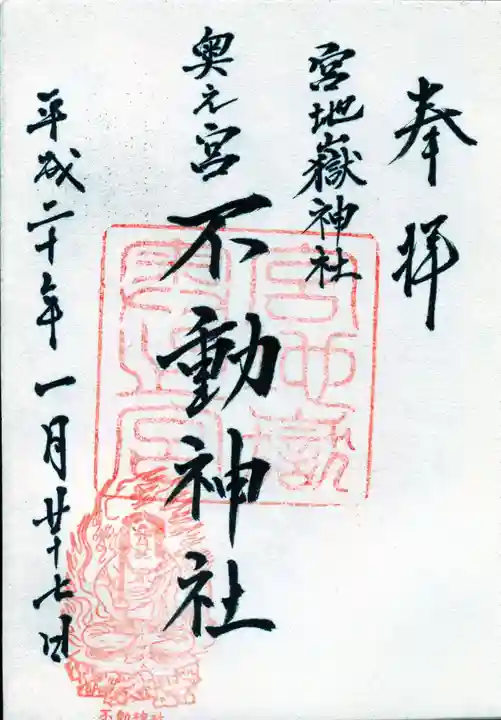 奉拝
宮地嶽神社
奥之宮
不動神社
平成二十年一月廿十七日
不動神社